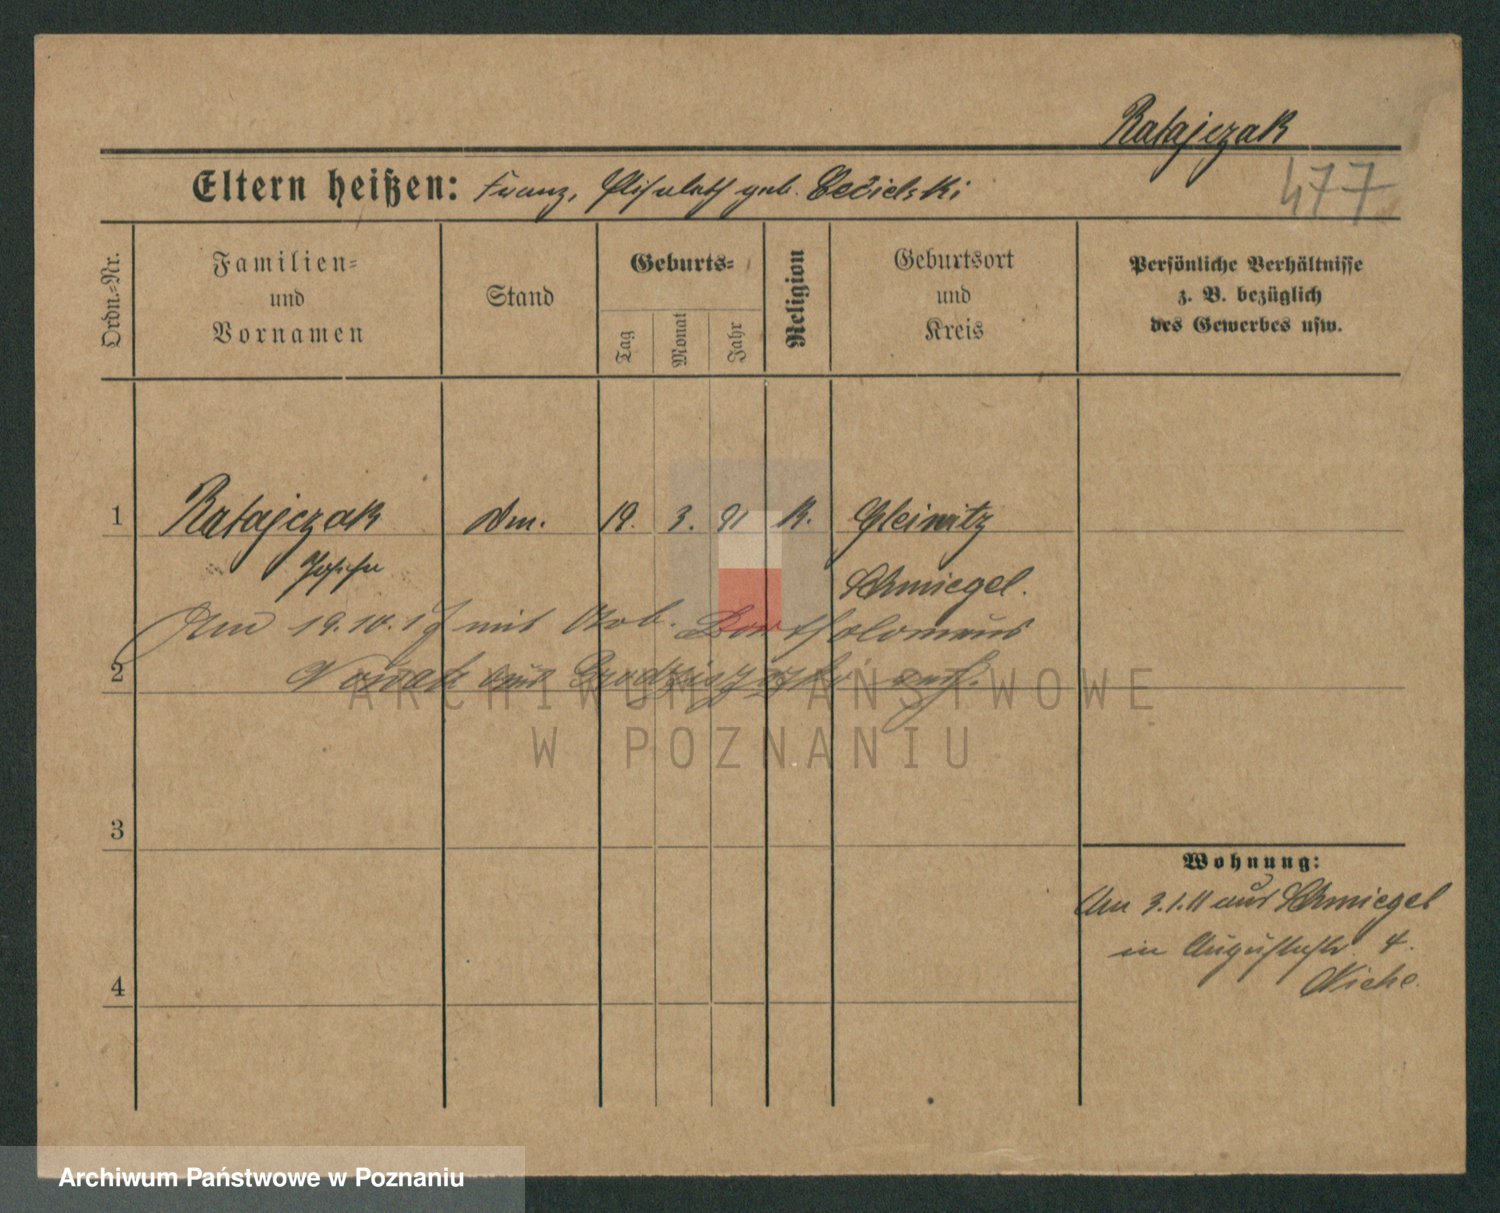 Ratajczak
Eltern heißen: Franz, Elisabeth geb.
477
Ordn.-Nr.
Familien-
und
Vornamen
Stand
Geburts-
Tag
Monat
Jahr
Religion
Geburtsort
und
Kreis
Persönliche Verhältnisse
z. B. bezüglich
des Gewerbes usw.
1 Ratajczak 19. 3. 91 K.
Schmiegel.
Am 19.10.17 mit Arb.
2 Nowak
ARCHIWUM PAŃSTWOWE
W POZNANIU
3
Wohnung:
Am 3.1.11 aus Schmiegel
in Augustastr. 4.
4
Archiwum Państwowe w Poznaniu